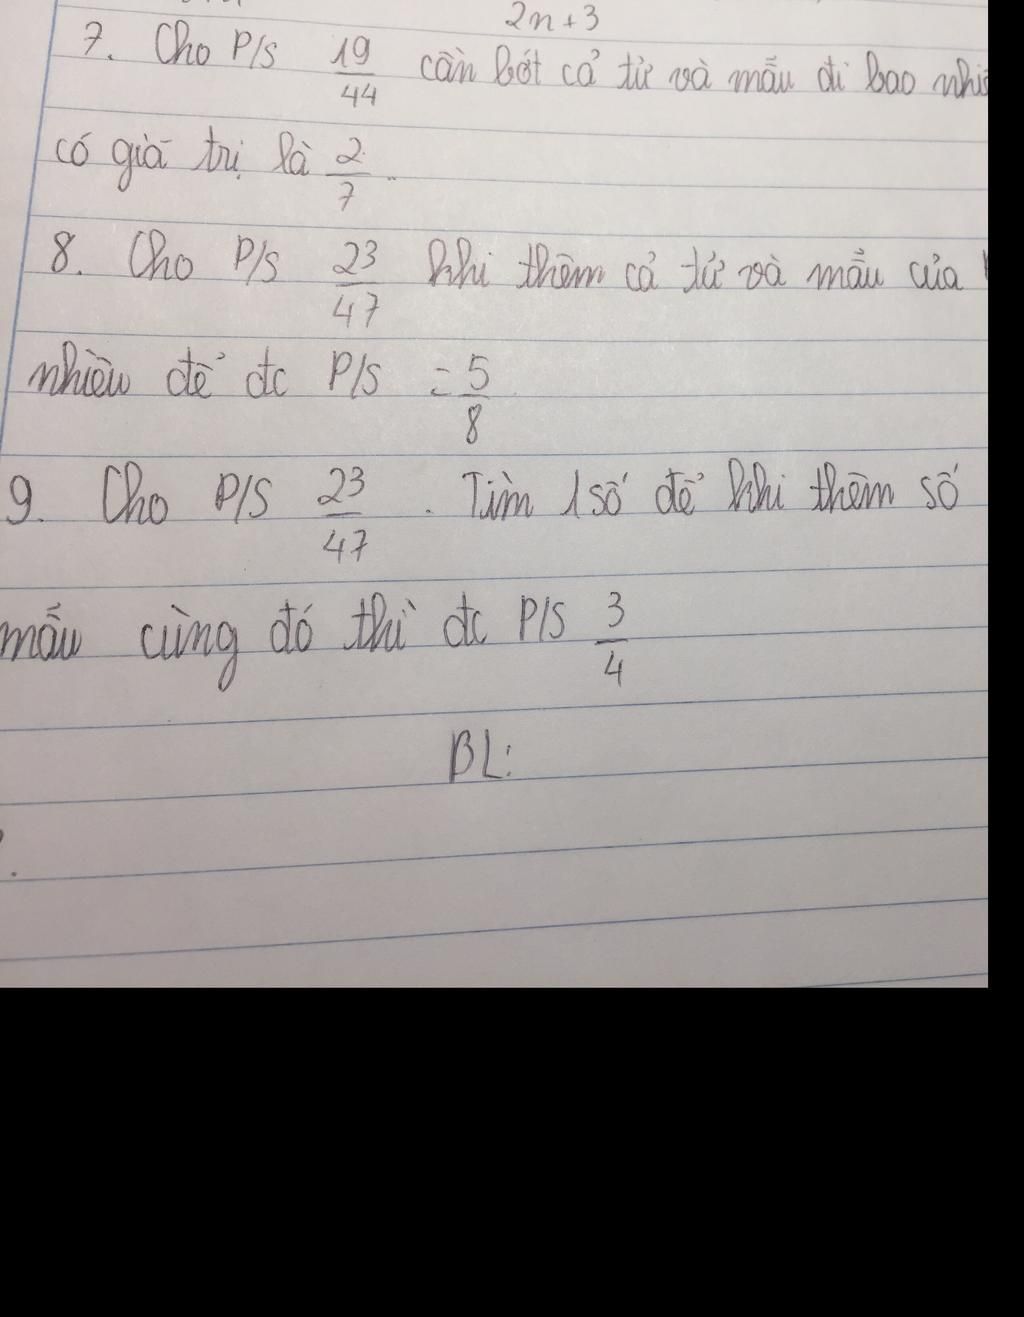 2n+3
7. Cho P/S 19/44 cần bớt cả tử và mẫu đi bao
có giá trị là 2/7
8. Cho P/S 23/47 khi thêm cả tử và mẫu của
nhiêu để đc P/S = 5/8
9. Cho P/S 23/47. Tìm 1 số để khi thêm số
mẫu cùng đó thì đc P/S 3/4
BL: